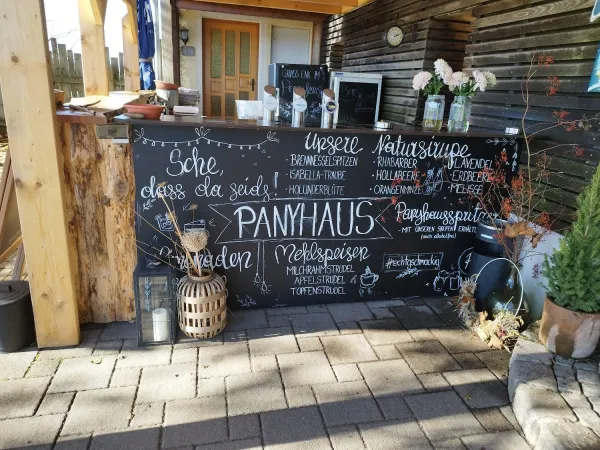 Sche,
dass da seids!
Unsere Natursirupe
• BRENNNESSELSPITZEN
• ISABELLA-TRAUBE
• HOLUNDERBLÜTE
• RHABARBER
• HOLLARBEERE
• ORANGENMINZE
• LAVENDEL
• ERDBEERE
• MELISSE
PANYHAUS
Panyhausspritzer
• MIT UNSEREN SIRUPEN ERHÄLTL.
(auch alkoholfrei)
Mehlspeisen
MILCHRAHMSTRUDEL
APFELSTRUDEL
TOPFENSTRUDEL
#echtgschmackig